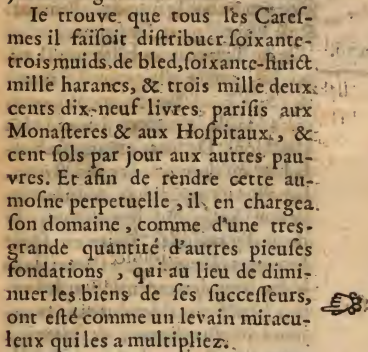 Ie trouve que tous les Caref-
mes il faiſoit diſtribuer ſoixante-
trois muids de bled, ſoixante-huict
mille harancs, & trois mille deux
cents dix-neuf livres pariſis aux
Monaſteres & aux Hoſpitaux, &
cent ſols par jour aux autres pau-
vres. Et afin de rendre cette au-
moſne perpetuelle, il en chargea
ſon domaine, comme d'une tres-
grande quantité d'autres pieuſes
fondations, qui au lieu de dimi-
nuer les biens de ſes ſucceſſeurs,
ont eſté comme un levain miracu-
leux qui les a multipliez.